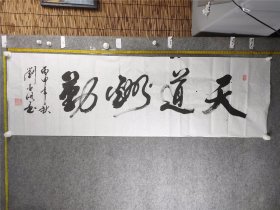 天道酬勤
丙申年秋
劉